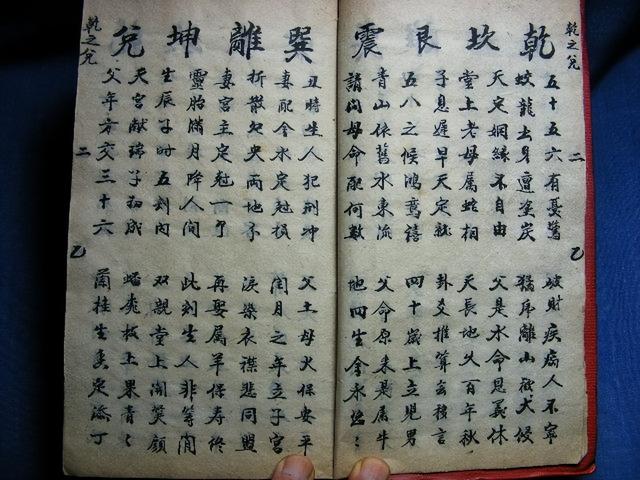 乾之兌
二
乙
乾坎艮震
五十五六有憂驚
破財疾病人不寧
蛟龍出身遭塗炭
猛虎離山被犬侵
天定姻緣不自由
父是水命恩義休
堂上老母属蛇相
天長地久百年秋
子息遲早天定就
卦爻推算玄機言
五八之候鴻鸞禧
四十歲上立見男
青山依舊水東流
父命原来是属牛
請问母命配何數
地四生金永
巽離坤兌
丑時生人犯刑冲
父土母火保安平
妻配金水定尅損
閏月之年立子宮
折散央兩地
淚染衣襟悲同盟
妻宮主定尅一
再娶属羊保寿終
靈胎滿月降人间
此刻生人非等閒
生辰子時五刻內
双親堂上開笑顏
天宮献瑞子初成
蟠桃枝上果青々
父年方交三十六
蘭桂生香定添丁
乾之兌
二
乙